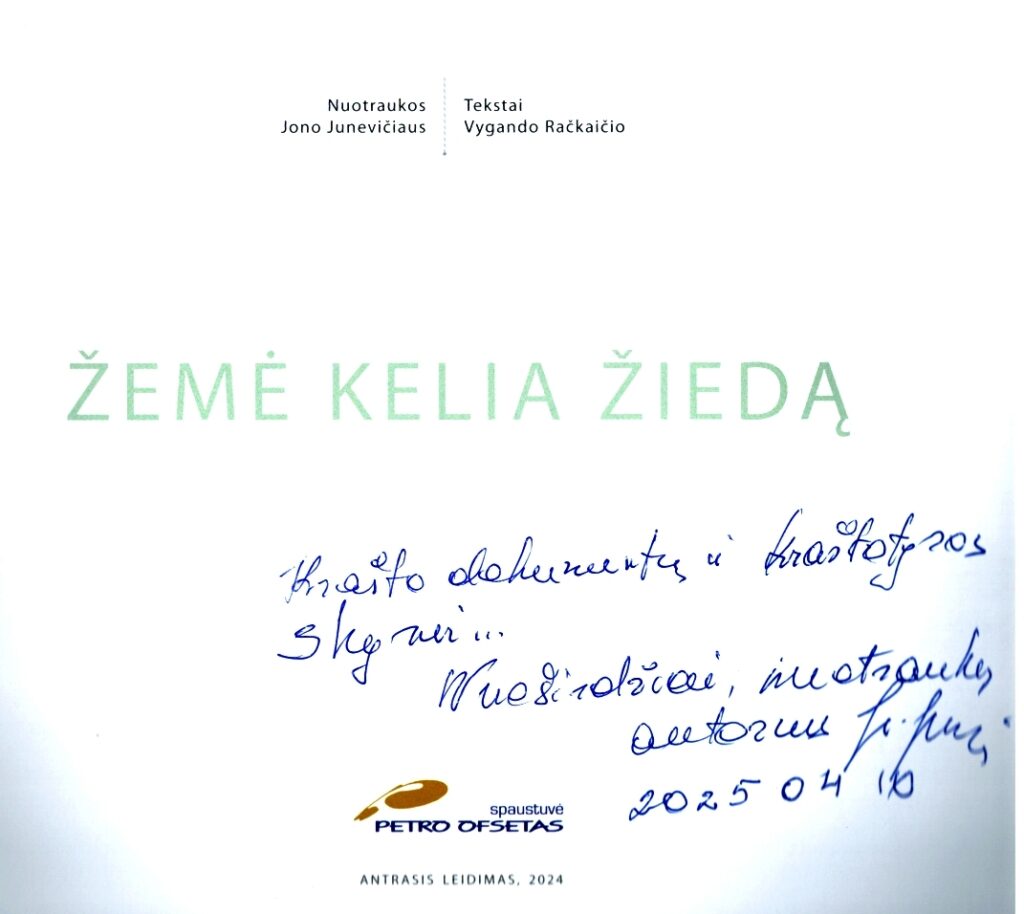 Nuotraukos
Jono Junevičiaus
Tekstai
Vygando Račkaičio
ŽEMĖ KELIA ŽIEDĄ
Krašto dokumentų ir kraštotyros
skyriui...
Nuoširdžiai, nuotraukų
autorius
2025 04 10
spaustuvė
PETRO OFSETAS
ANTRASIS LEIDIMAS, 2024